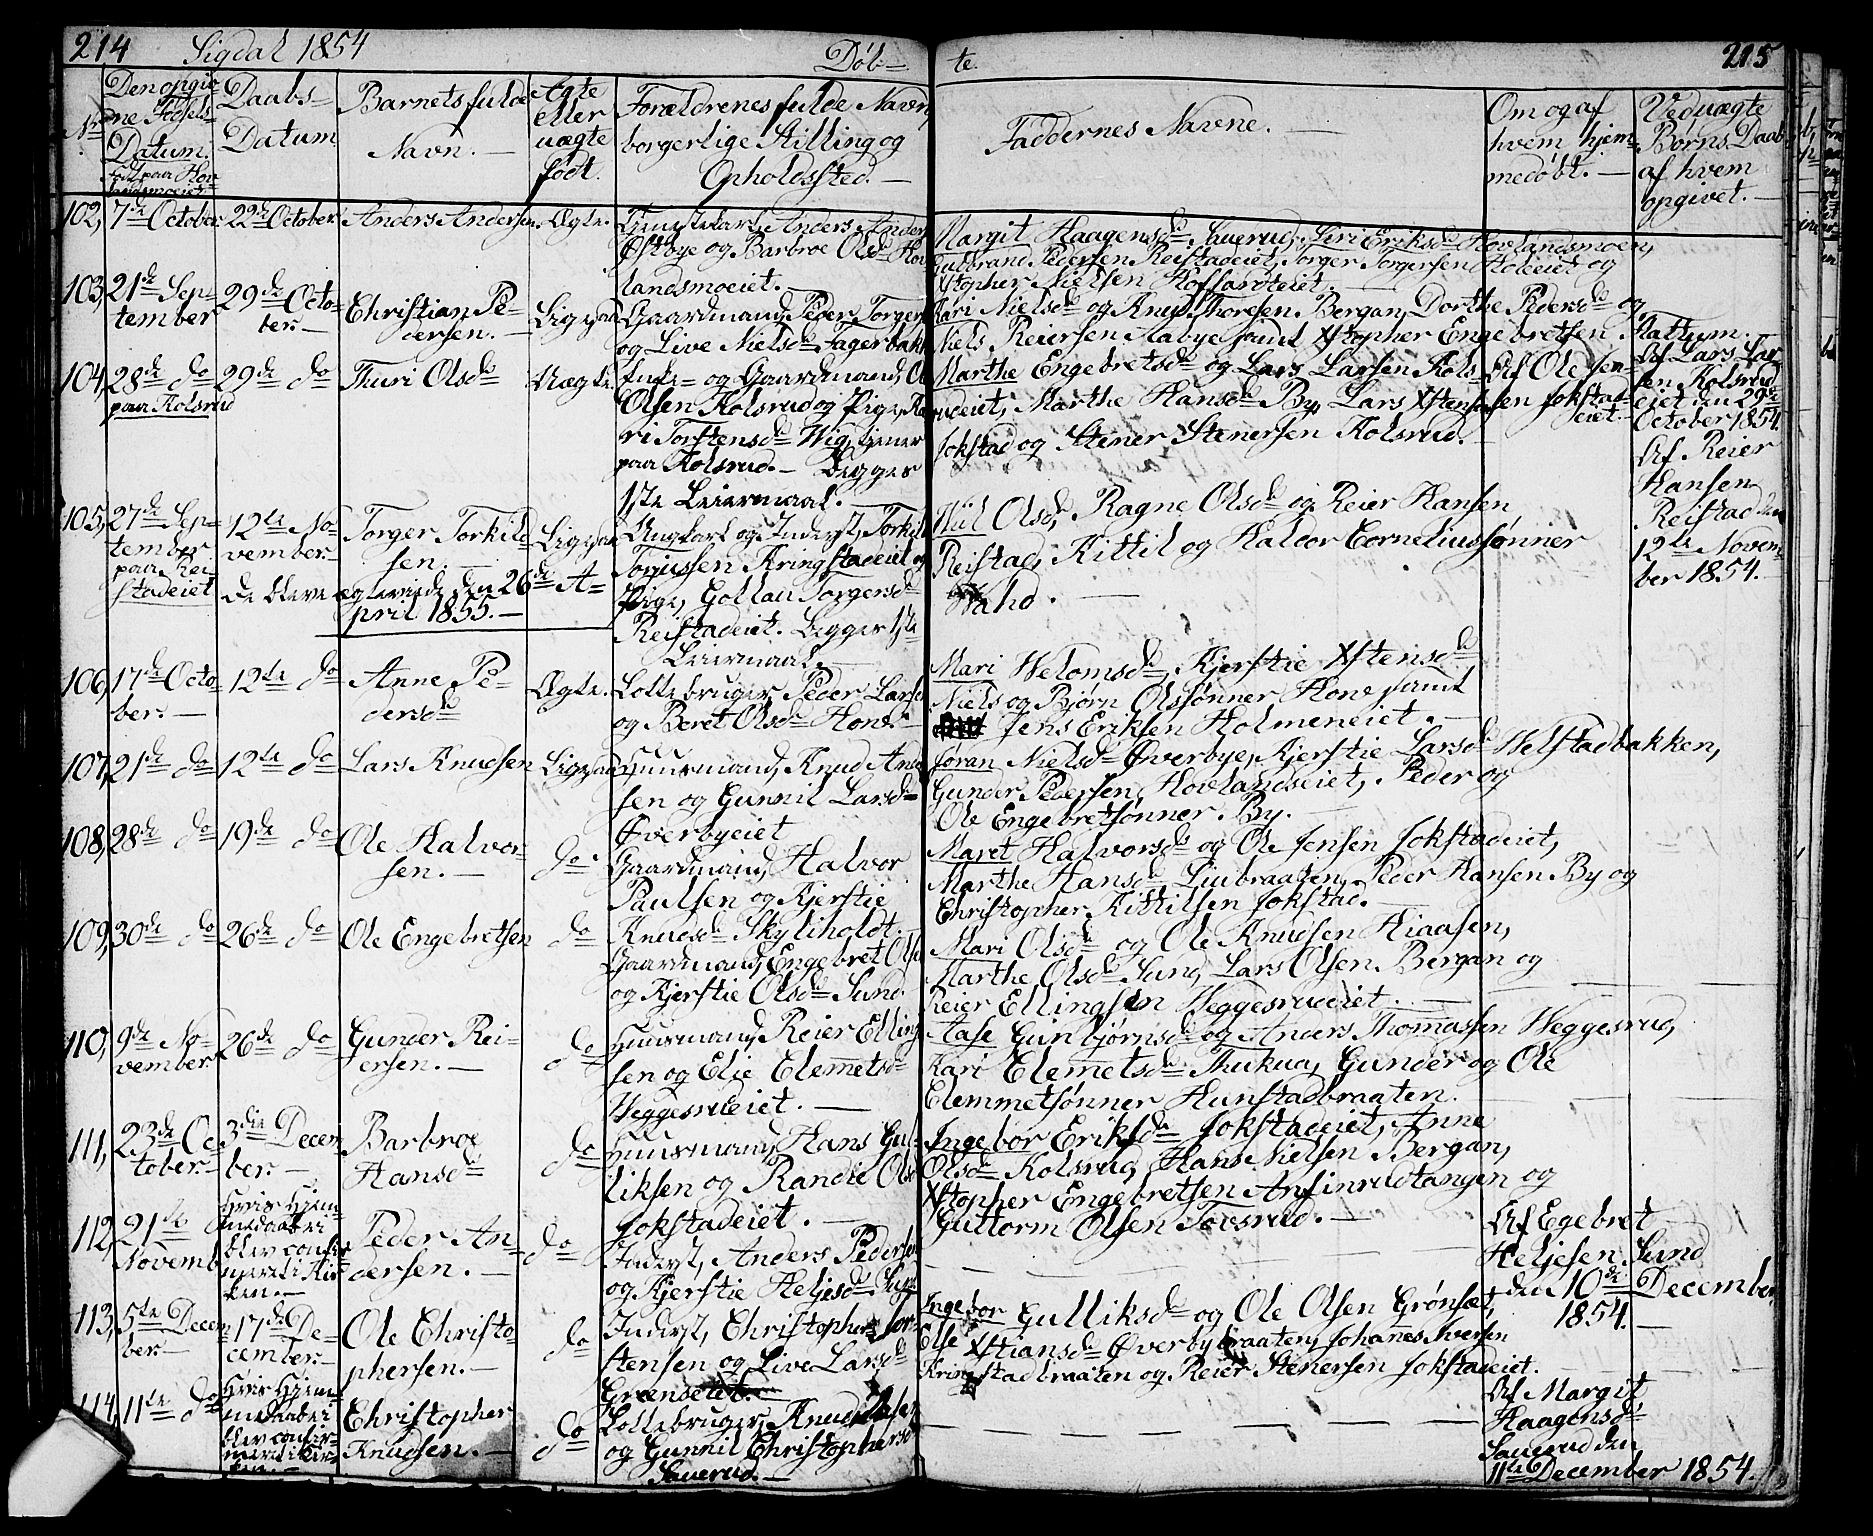 214 Sigdal 1854 Døb-
te. 215
No
Den opgiv-
ne Fødsels-
Datum.
Født paa Hov-
landsmoeiet
Daabs-
Datum
Barnets fulde
Navn. —
Ægte
eller
uægte
født.
Forældrenes fulde Navn,
borgerlige Stilling og
Opholdssted. —
Faddernes Navne. —
Om og af
hvem hjem-
medøbt. —
Ved uægte
Børns Daab
af hvem
opgivet. —
102, 7de October 22de October Anders Andersen. Ægte.
Anders Ander
Østbye og Barbroe Olsdr Hov
landsmoeiet. —
Margit Haagensdr Sauerud, Siri Eriksdr Hovlandsmoen,
Gulbrand Pedersen Reistadeiet, Torger Torgersen Hoveiet og
Xstopher Nielsen Hoffarteiet. —
103, 21de Sep-
tember
29de Octo-
ber. —
Christian Pe-
dersen. —
Ligesaa
Gaardmand, Peder Torger
og Live Nielsdr Fagerbakk
Kari Nielsdr og Knud Thoresen Bergan, Dorthe Pedersdr og
Niels Reiersen Aabye samt Xstopher Engebretsen Hattum.
104, 28de do
paa Kolsrud
29de do
Thuri Olsdr
Uægte.
Enke- og Gaardmand, Ol
Olsen Kolsrud og Pige, Ka
ri Torstensdr Wig, tjener
paa Kolsrud. — Begges
1ste Leiermaal. —
Marthe Engebretsdr og Lars Larsen Kols-
rudeiet, Marthe Hansdr By, Lars Xstensen
Jokstad og Stener Stenersen Kolsrud.
Af Ole Jen-
sen Jokstad-
eiet. —
Af Lars Lar
sen Kolsrud-
eiet den 29de
October 1854.
105, 27de Sep-
tember
paa Rei-
stadeiet
12te No-
vember. —
Torger Torkild-
sen. —
Ligesaa
Ungkarl og Inderst, Torkild
Torjussen Kringstadeiet og
Pige, Gollau Torgersdr
Reistadeiet. Begges 1ste
Leiermaal. —
De bleve ægteviede den 26de A-
pril 1855. —
Olsdr, Ragne Olsdr og Reier Hansen
Reistad, Kittil og Haldor Corneliussønner
Wahd. —
Af Reier
Hansen
Reistad den
12te Novem-
ber 1854. —
106, 17de Octo-
ber. —
12te do
Anne Pe-
dersdr
Ægte.
Lottebruger, Peder Larse
og Beret Olsdr Hove. —
Mari Welomsdr, Kjerstie Xstensdr
Niels og Bjørn Olssønner Hove samt
Jens Eriksen Holmeneiet. —
107, 21de do 12te do Lars Knudsen Ligesaa
Huusmand, Knud Ande
sen og Gunnil Larsdr
Øverbyeiet
Jøran Nielsdr Øverbye, Kjerstie Larsdr Welstadbakken,
Gunder Pedersen Hovlandseiet, Peder og
Ole Engebretsønner By. —
108, 28de do 19de do
Ole Halvor-
sen. —
do
Gaardmand, Halvor
Paulsen og Kjerstie
Knudsdr Skyliholdt.
Maret Halvorsdr og Ole Jensen Jokstadeiet,
Marthe Hansdr Liubraaten, Peder Hansen By og
Christopher Kittilsen Jokstad. —
109, 30de do 26de do Ole Engebretsen do
Gaardmand, Engebret Olse
og Kjerstie Olsdr Sund.
Mari Olsdr og Ole Knudsen Kiaasen,
Marthe Olsdr Sund, Lars Olsen Bergan og
Reier Ellingsen Heggesrudeiet. —
110, 9de No-
vember.
26de do
Gunder Rei-
ersen. —
do
Huusmand, Reier Elling
sen og Elie Elemetsdr
Heggesrudeiet. —
Aase Gunbjørnsdr og Anders Thomassen Heggesrud,
Kari Elemetsdr Thukua, Gunder og Ole
Elemmetsønner Hunstadbraaten.
111, 23de Oc-
tober. —
3die Decem
ber. —
Barbroe
Hansdr
do
Huusmand, Hans Gul-
liksen og Randie Ols
Jokstadeiet. —
Ingebor Eriksdr Jokstadeiet, Anne
Olsdr Kolsrud, Hans Nielsen Bergan,
Xstopher Engebretsen Anfinrudtangen og
Guttorm Olsen Tovsrud. —
112, 21de
Novemb
Hvis Hjem-
medaab i
blev confir
meret i Kir
ken. —
Peder An-
dersen. —
do
Inderst, Anders Peders
og Kjerstie Heljesdr
Af Egebret
Heljesen Sund
den 10de December
1854. —
113, 5te Decem
ber. —
17de De-
cember. —
Ole Christo-
phersen. —
do
Inderst, Christopher Tor-
stensen og Live Larsdr
Grønseteiet. —
Ingebor Gulliksdr og Ole Olsen Grønset,
Else Xstiansdr Øverbybraaten, Johanes Iversen
Kringstadbraaten og Reier Stenersen Jokstadeiet.
114, 11te do
Hvis Hjem-
medaab i
blev confir-
meret i Kir-
ken. —
Christopher
Knudsen. —
do
Lottebruger, Knud Olsen
og Gunnil Christophersd
Sauerud. —
Af Margit
Haagensdr
Sauerud den
11te December 1854.